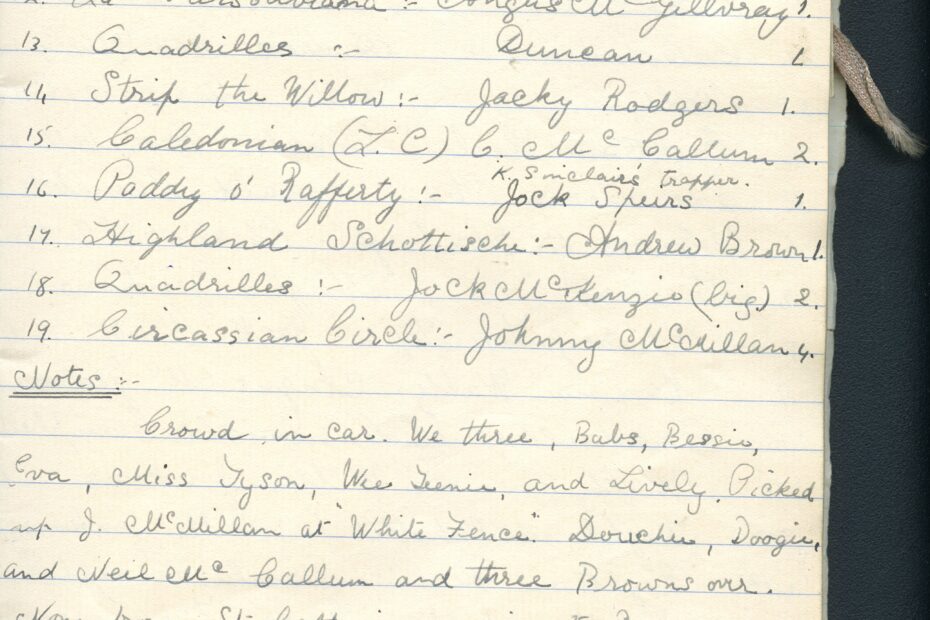 Angus McGillvray 1.
13. Quadrilles :- Duncan 1
14. Strip the Willow:- Jacky Rodgers 1.
15. Caledonian (L.C) C. McCallum 2.
K. Sinclair's Trapper.
16. Paddy o' Rafferty:- Jock Speirs 1.
17. Highland Schottische:- Andrew Brown 1.
18. Quadrilles :- Jock McKenzie (big) 2.
19. Circassian Circle:- Johnny McMillan 4.
Notes:-
Crowd in car. We three, Babs, Bessie,
Eva, Miss Tyson, Wee Teenie, and Lively. Picked
up J. McMillan at "White Fence". Douchie, Doogie,
and Neil McCallum and three Browns over.